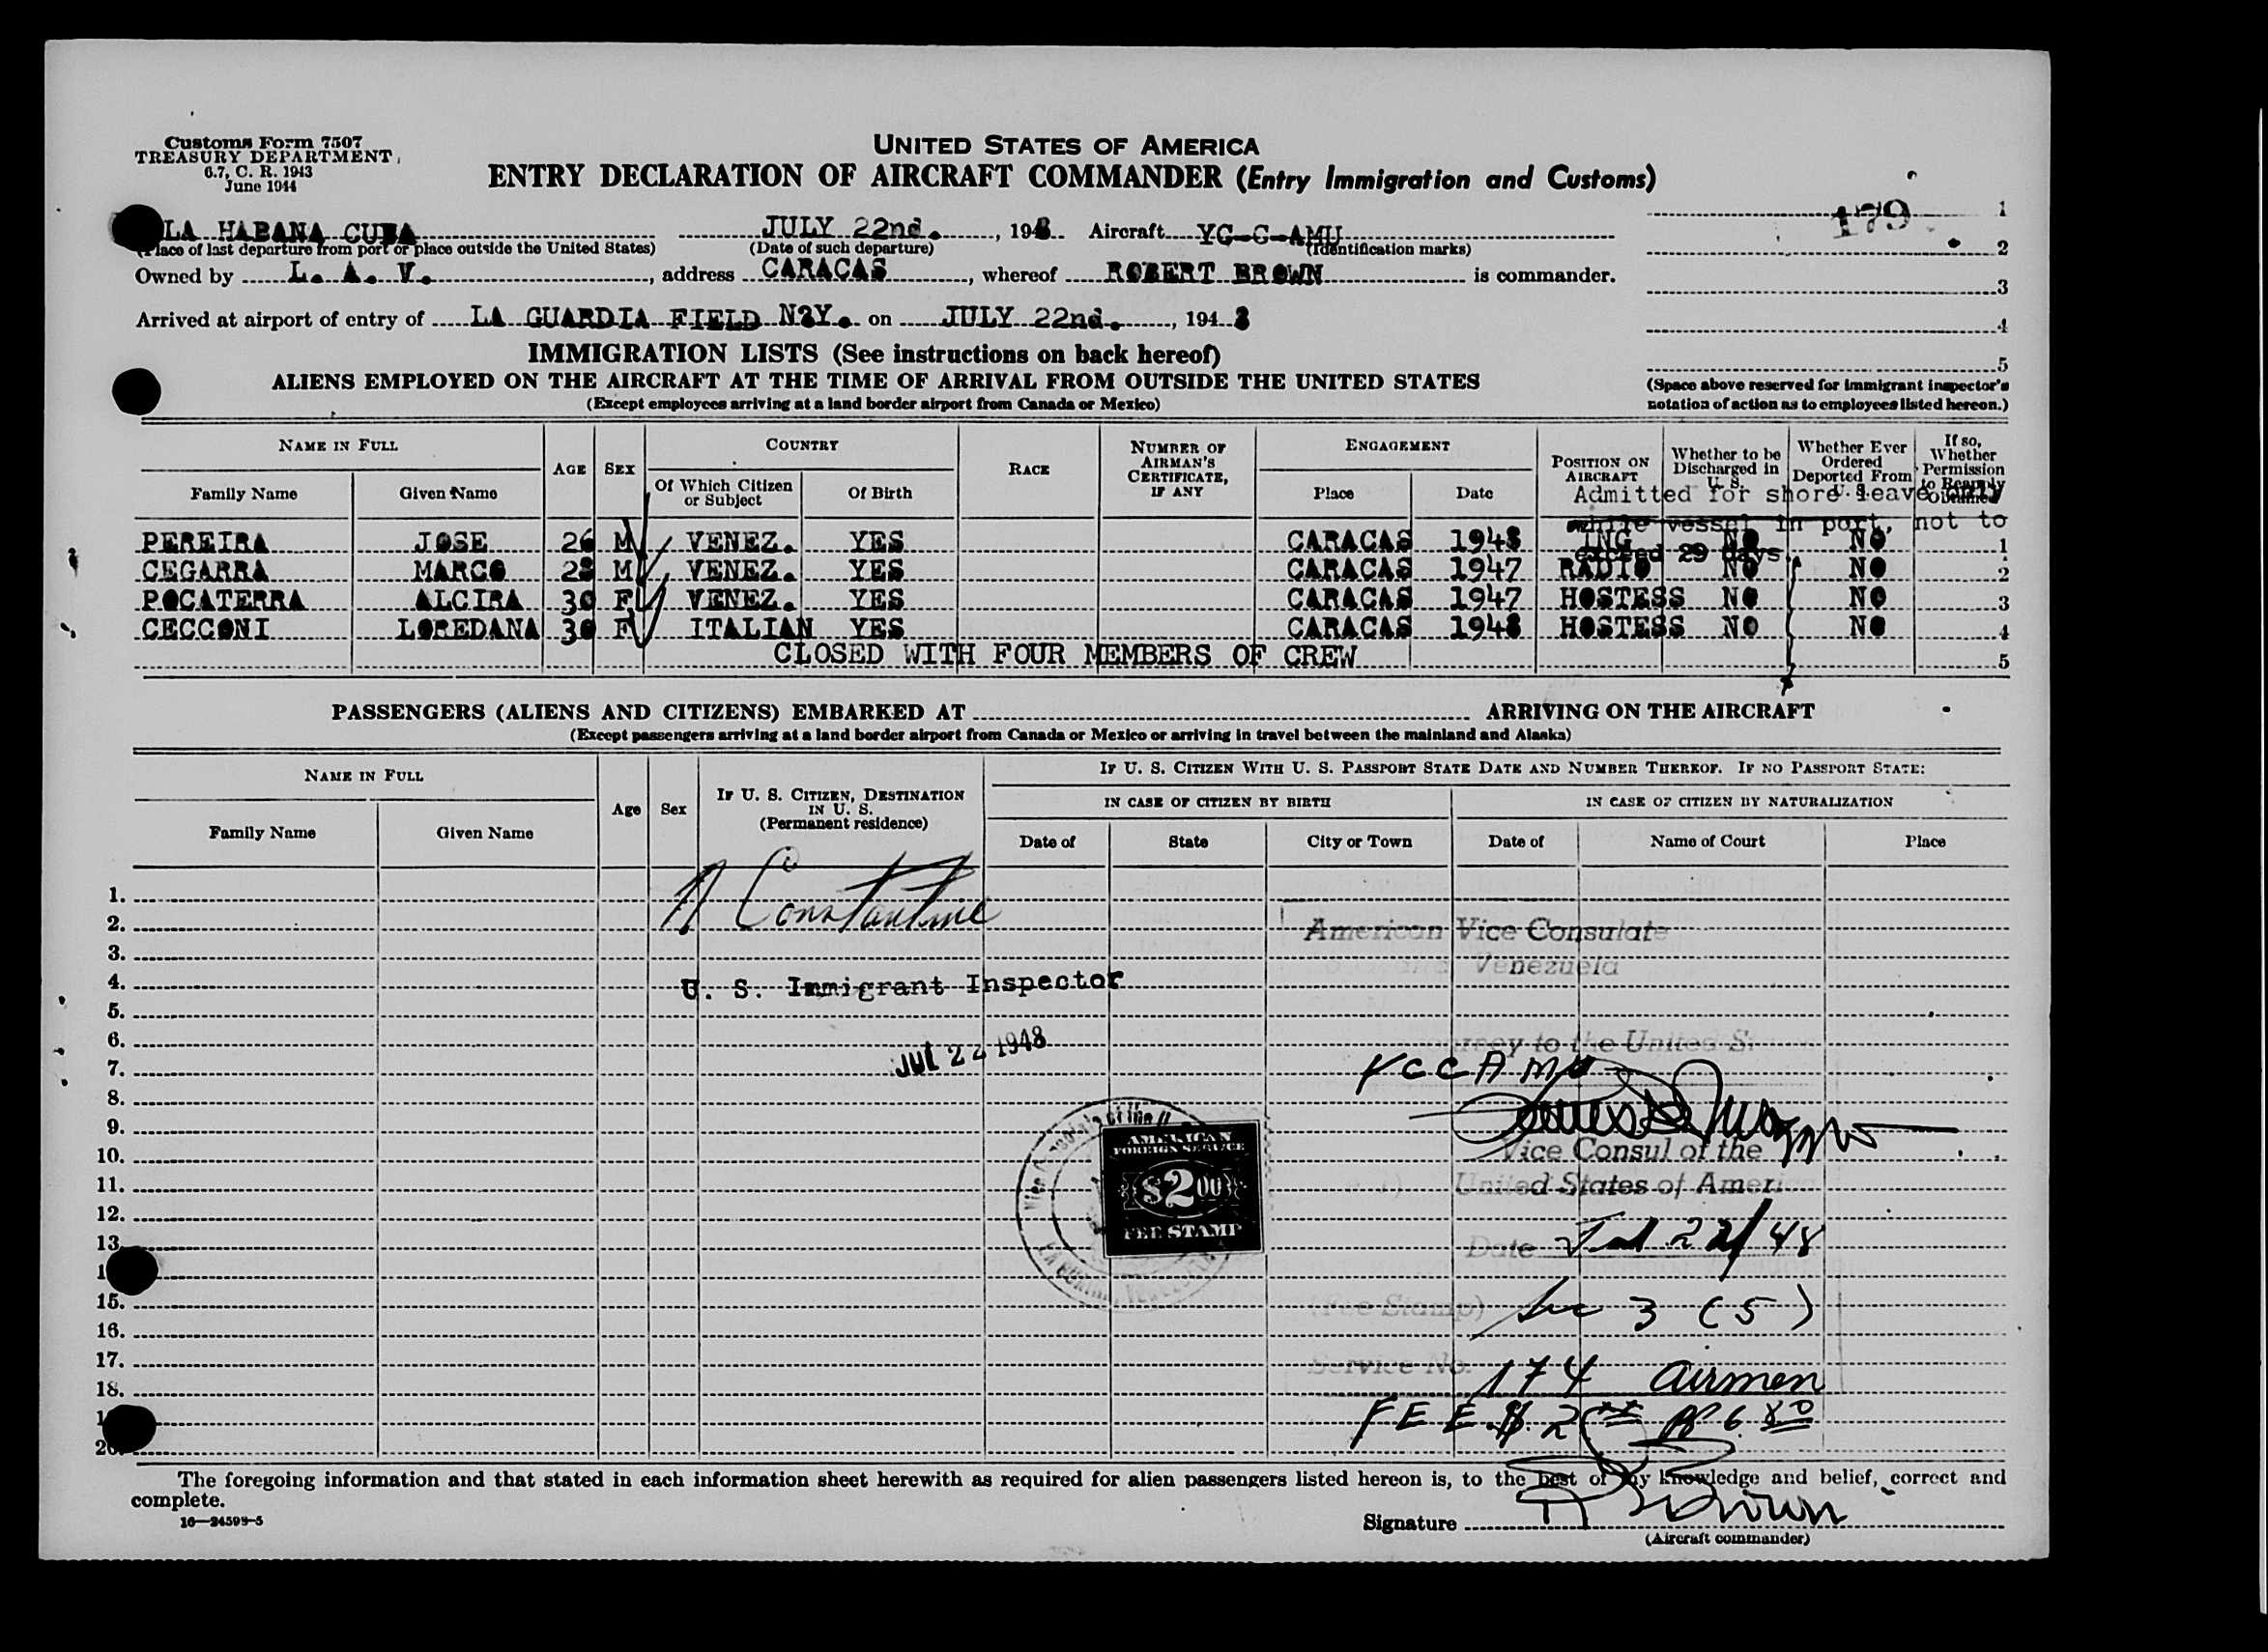 Customs Form 7507
TREASURY DEPARTMENT
6.7, C. R. 1943
June 1944
UNITED STATES OF AMERICA
ENTRY DECLARATION OF AIRCRAFT COMMANDER (Entry Immigration and Customs)
179
1
2
3
4
5
LA HABANA CUBA JULY 22nd. , 1948 Aircraft YC-C-AMU
(Place of last departure from port or place outside the United States) (Date of such departure) (Identification marks)
Owned by L. A. V. , address CARACAS , whereof ROBERT BROWN is commander.
Arrived at airport of entry of LA GUARDIA FIELD N.Y. on JULY 22nd. , 1948
IMMIGRATION LISTS (See instructions on back hereof)
ALIENS EMPLOYED ON THE AIRCRAFT AT THE TIME OF ARRIVAL FROM OUTSIDE THE UNITED STATES
(Except employees arriving at a land border airport from Canada or Mexico)
(Space above reserved for immigrant inspector's
notation of action as to employees listed hereon.)
NAME IN FULL AGE SEX COUNTRY RACE NUMBER OF AIRMAN'S CERTIFICATE, IF ANY ENGAGEMENT POSITION ON AIRCRAFT Whether to be Discharged in U. S. Whether Ever Ordered Deported From U. S. If so, Whether Permission to Reapply Obtained
Family Name Given Name Of Which Citizen or Subject Of Birth Place Date
Admitted for shore leave only
while vessel in port, not to
exceed 29 days
PEREIRA JOSE 26 M VENEZ. YES CARACAS 1948 ING NO NO 1
CEGARRA MARCO 28 M VENEZ. YES CARACAS 1947 RADIO NO NO 2
POCATERRA ALCIRA 30 F VENEZ. YES CARACAS 1947 HOSTESS NO NO 3
CECCONI LOREDANA 30 F ITALIAN YES CARACAS 1948 HOSTESS NO NO 4
CLOSED WITH FOUR MEMBERS OF CREW 5
PASSENGERS (ALIENS AND CITIZENS) EMBARKED AT ARRIVING ON THE AIRCRAFT
(Except passengers arriving at a land border airport from Canada or Mexico or arriving in travel between the mainland and Alaska)
NAME IN FULL Age Sex IF U. S. CITIZEN, DESTINATION IN U. S. (Permanent residence) IF U. S. CITIZEN WITH U. S. PASSPORT STATE DATE AND NUMBER THEREOF. IF NO PASSPORT STATE:
IN CASE OF CITIZEN BY BIRTH IN CASE OF CITIZEN BY NATURALIZATION
Family Name Given Name Date of State City or Town Date of Name of Court Place
1.
N Constantine
2.
American Vice Consulate
3.
Venezuela
4.
U. S. Immigrant Inspector
5.
6.
JUL 22 1948
to the United S
7.
YCCAMU
8.
9.
10.
Vice Consul of the
11.
United States of Ameri
AMERICAN
FOREIGN SERVICE
$2.00
FEE STAMP
12.
13.
Date Jul 22/48
15.
(Fee Stamp) 3 (5)
16.
17.
Service No. 174 Airmen
18.
FEE $ 2 6 80
20.
The foregoing information and that stated in each information sheet herewith as required for alien passengers listed hereon is, to the best of my knowledge and belief, correct and
complete.
16—24598-5
Signature R Brown
(Aircraft commander)